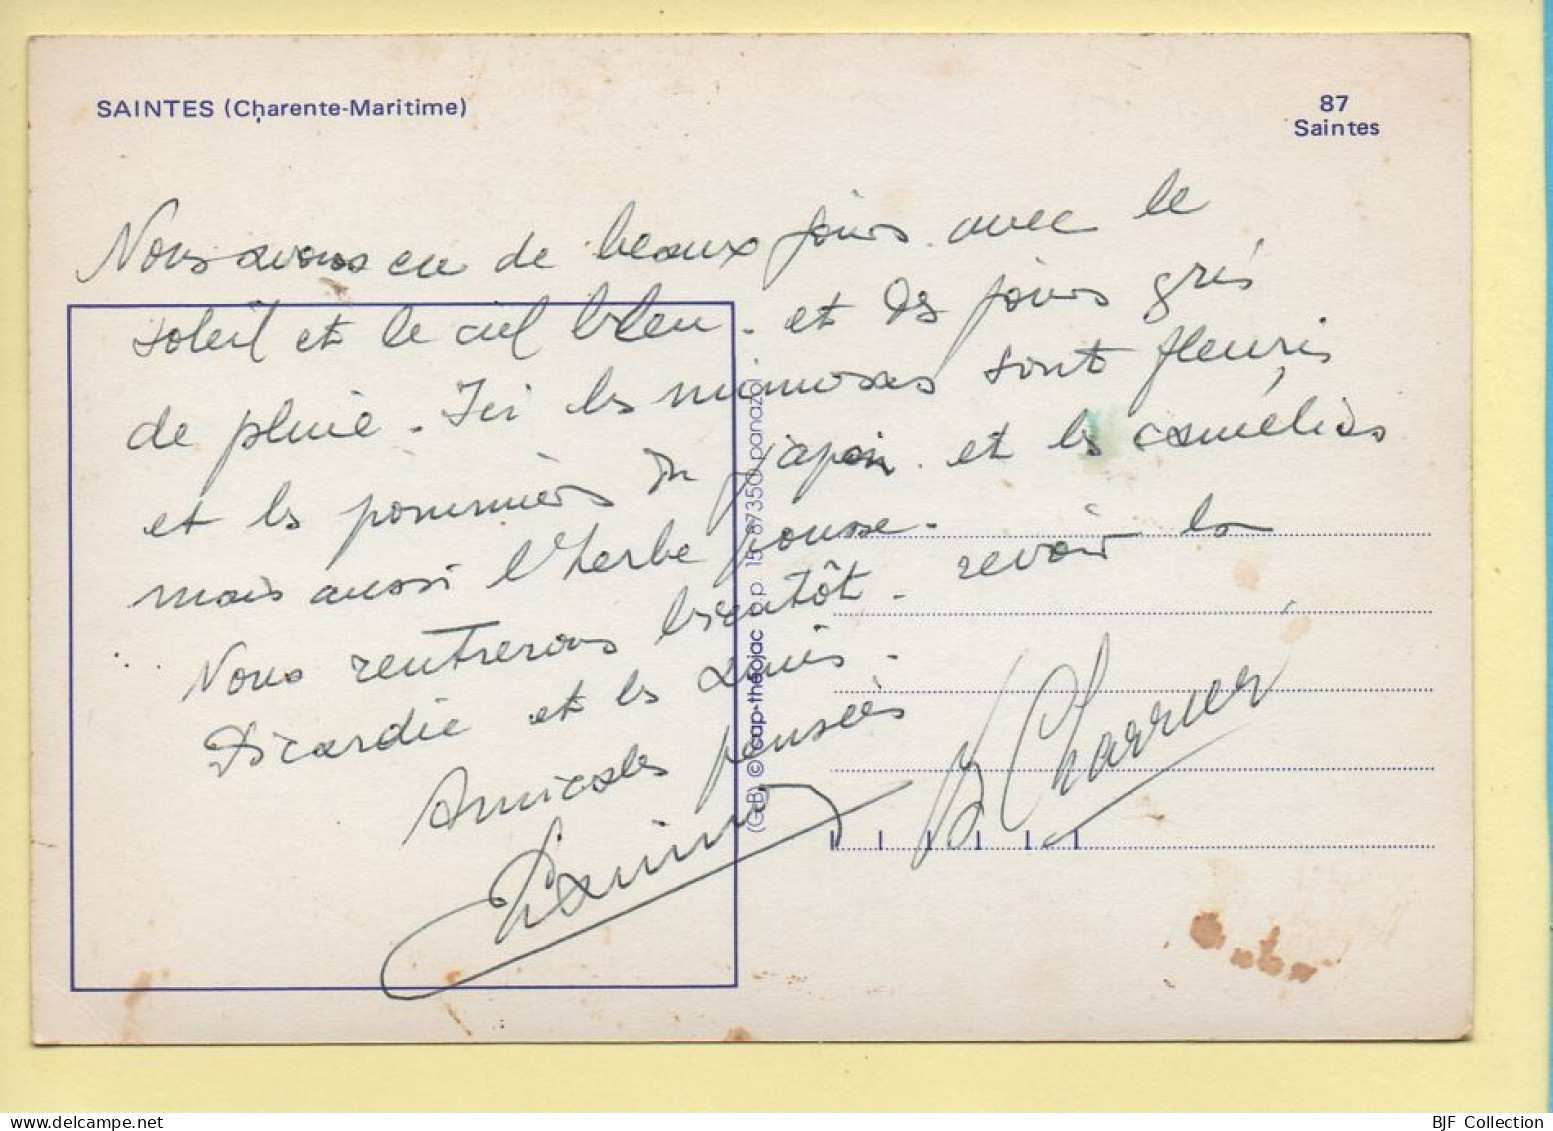 SAINTES (Charente-Maritime)
87
Saintes
Nous avons eu de beaux jours avec le
soleil et le ciel bleu. et des jours gris
de pluie. Ici les mimosas sont fleuris
et les pommiers du japon. et les camélias
mais aussi l'herbe pousse.
Nous rentrerons bientôt. revoir la
Picardie et les amis.
Amicales pensées
B Charrier
(GB) © cap-théojac b.p. 15 87350 panazol
BJF Collection